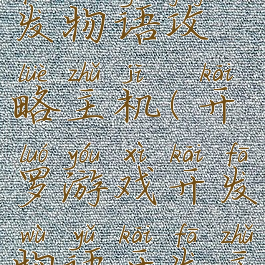 发物语攻
lüè zhǔ jī kāi
略主机(开
luó yóu xì kāi fā
罗游戏开发
wù yǔ kāi fā zhǔ